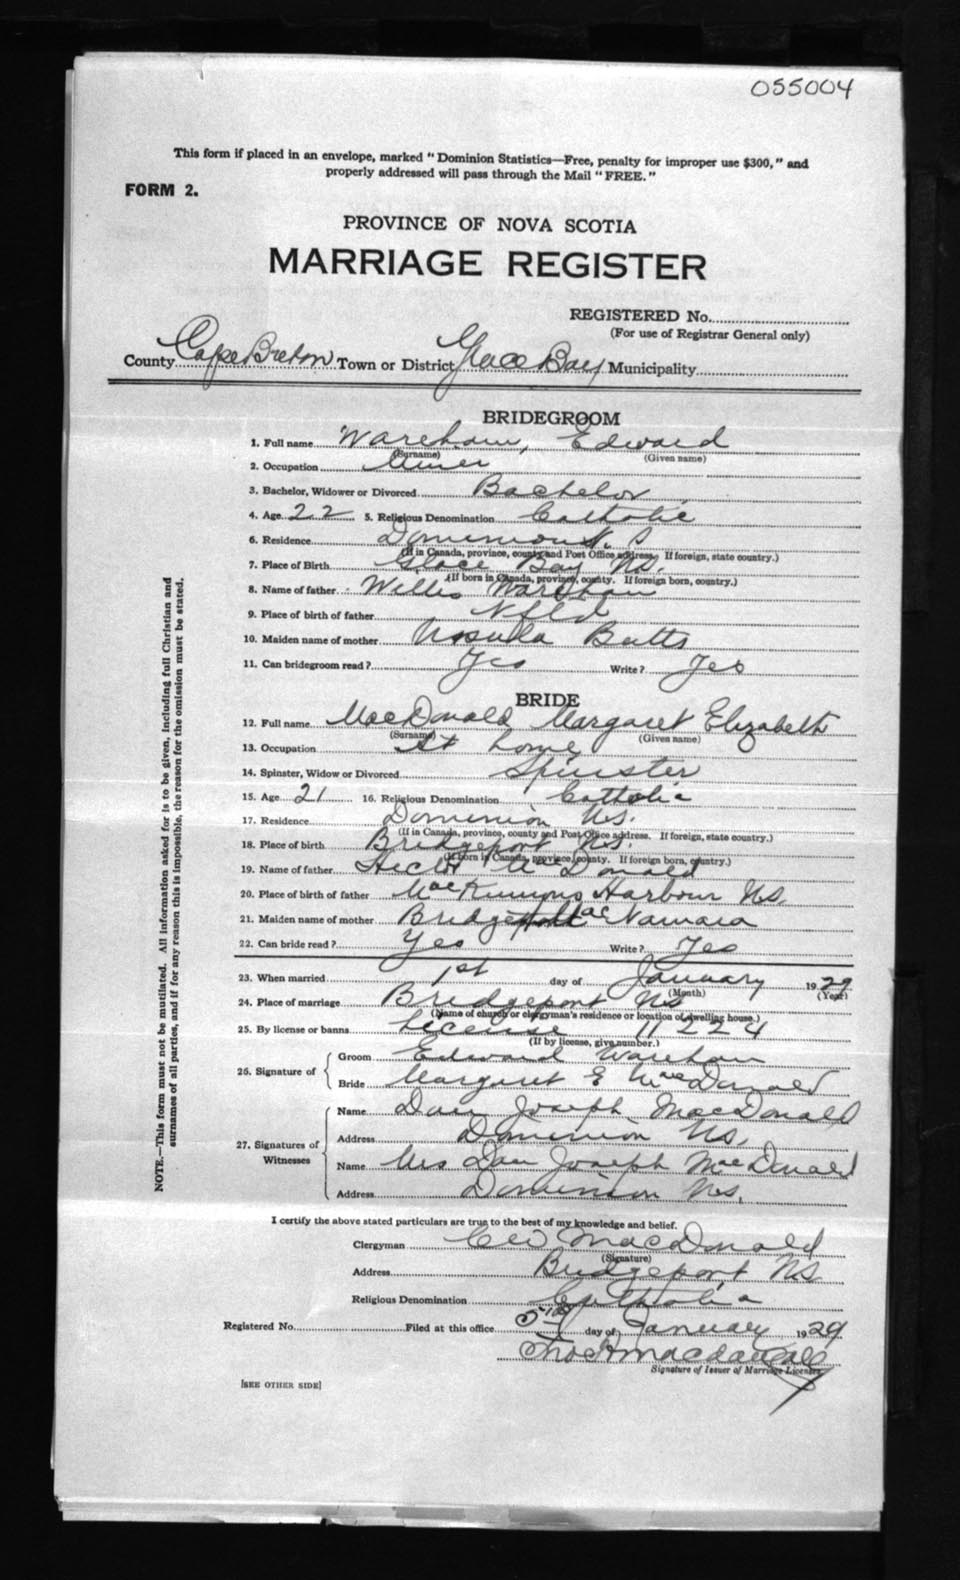 055004
This form if placed in an envelope, marked "Dominion Statistics—Free, penalty for improper use $300," and
properly addressed will pass through the Mail "FREE."
FORM 2.
PROVINCE OF NOVA SCOTIA
MARRIAGE REGISTER
REGISTERED No.
(For use of Registrar General only)
County Cape Breton Town or District Glace Bay Municipality
BRIDEGROOM
1. Full name Wareham, Edward
(Surname) (Given name)
2. Occupation Miner
3. Bachelor, Widower or Divorced Bachelor
4. Age 22 5. Religious Denomination Catholic
6. Residence Dominion N. S
(If in Canada, province, county and Post Office address. If foreign, state country.)
7. Place of Birth Glace Bay NS.
(If born in Canada, province, county. If foreign born, country.)
8. Name of father Willis Wareham
9. Place of birth of father Nfld
10. Maiden name of mother Ursula Butts
11. Can bridegroom read? Yes Write? Yes
BRIDE
12. Full name MacDonald Margaret Elizabeth
(Surname) (Given name)
13. Occupation At home
14. Spinster, Widow or Divorced Spinster
15. Age 21 16. Religious Denomination Catholic
17. Residence Dominion NS.
(If in Canada, province, county and Post Office address. If foreign, state country.)
18. Place of birth Bridgeport NS.
(If born in Canada, province, county. If foreign born, country.)
19. Name of father Hector McDonald
20. Place of birth of father MacKinnons Harbour NS.
21. Maiden name of mother MacNamara
22. Can bride read? Yes Write? Yes
23. When married 1st day of January 1929
(Month) (Year)
24. Place of marriage Bridgeport NS
(Name of church or clergyman's residence or location of dwelling house.)
25. By license or banns License 11224
(If by license, give number.)
26. Signature of
Groom Edward Wareham
Bride Margaret E MacDonald
27. Signatures of Witnesses
Name Dan Joseph MacDonald
Address Dominion NS.
Name Mrs Dan Joseph MacDonald
Address Dominion NS.
I certify the above stated particulars are true to the best of my knowledge and belief.
Clergyman MacDonald
(Signature)
Address Bridgeport NS
Religious Denomination Catholic
Registered No. Filed at this office 5th day of January 1929
Signature of Issuer of Marriage Licenses
[SEE OTHER SIDE]
NOTE.—This form must not be mutilated. All information asked for is to be given, including full Christian and
surnames of all parties, and if for any reason this is impossible, the reason for the omission must be stated.